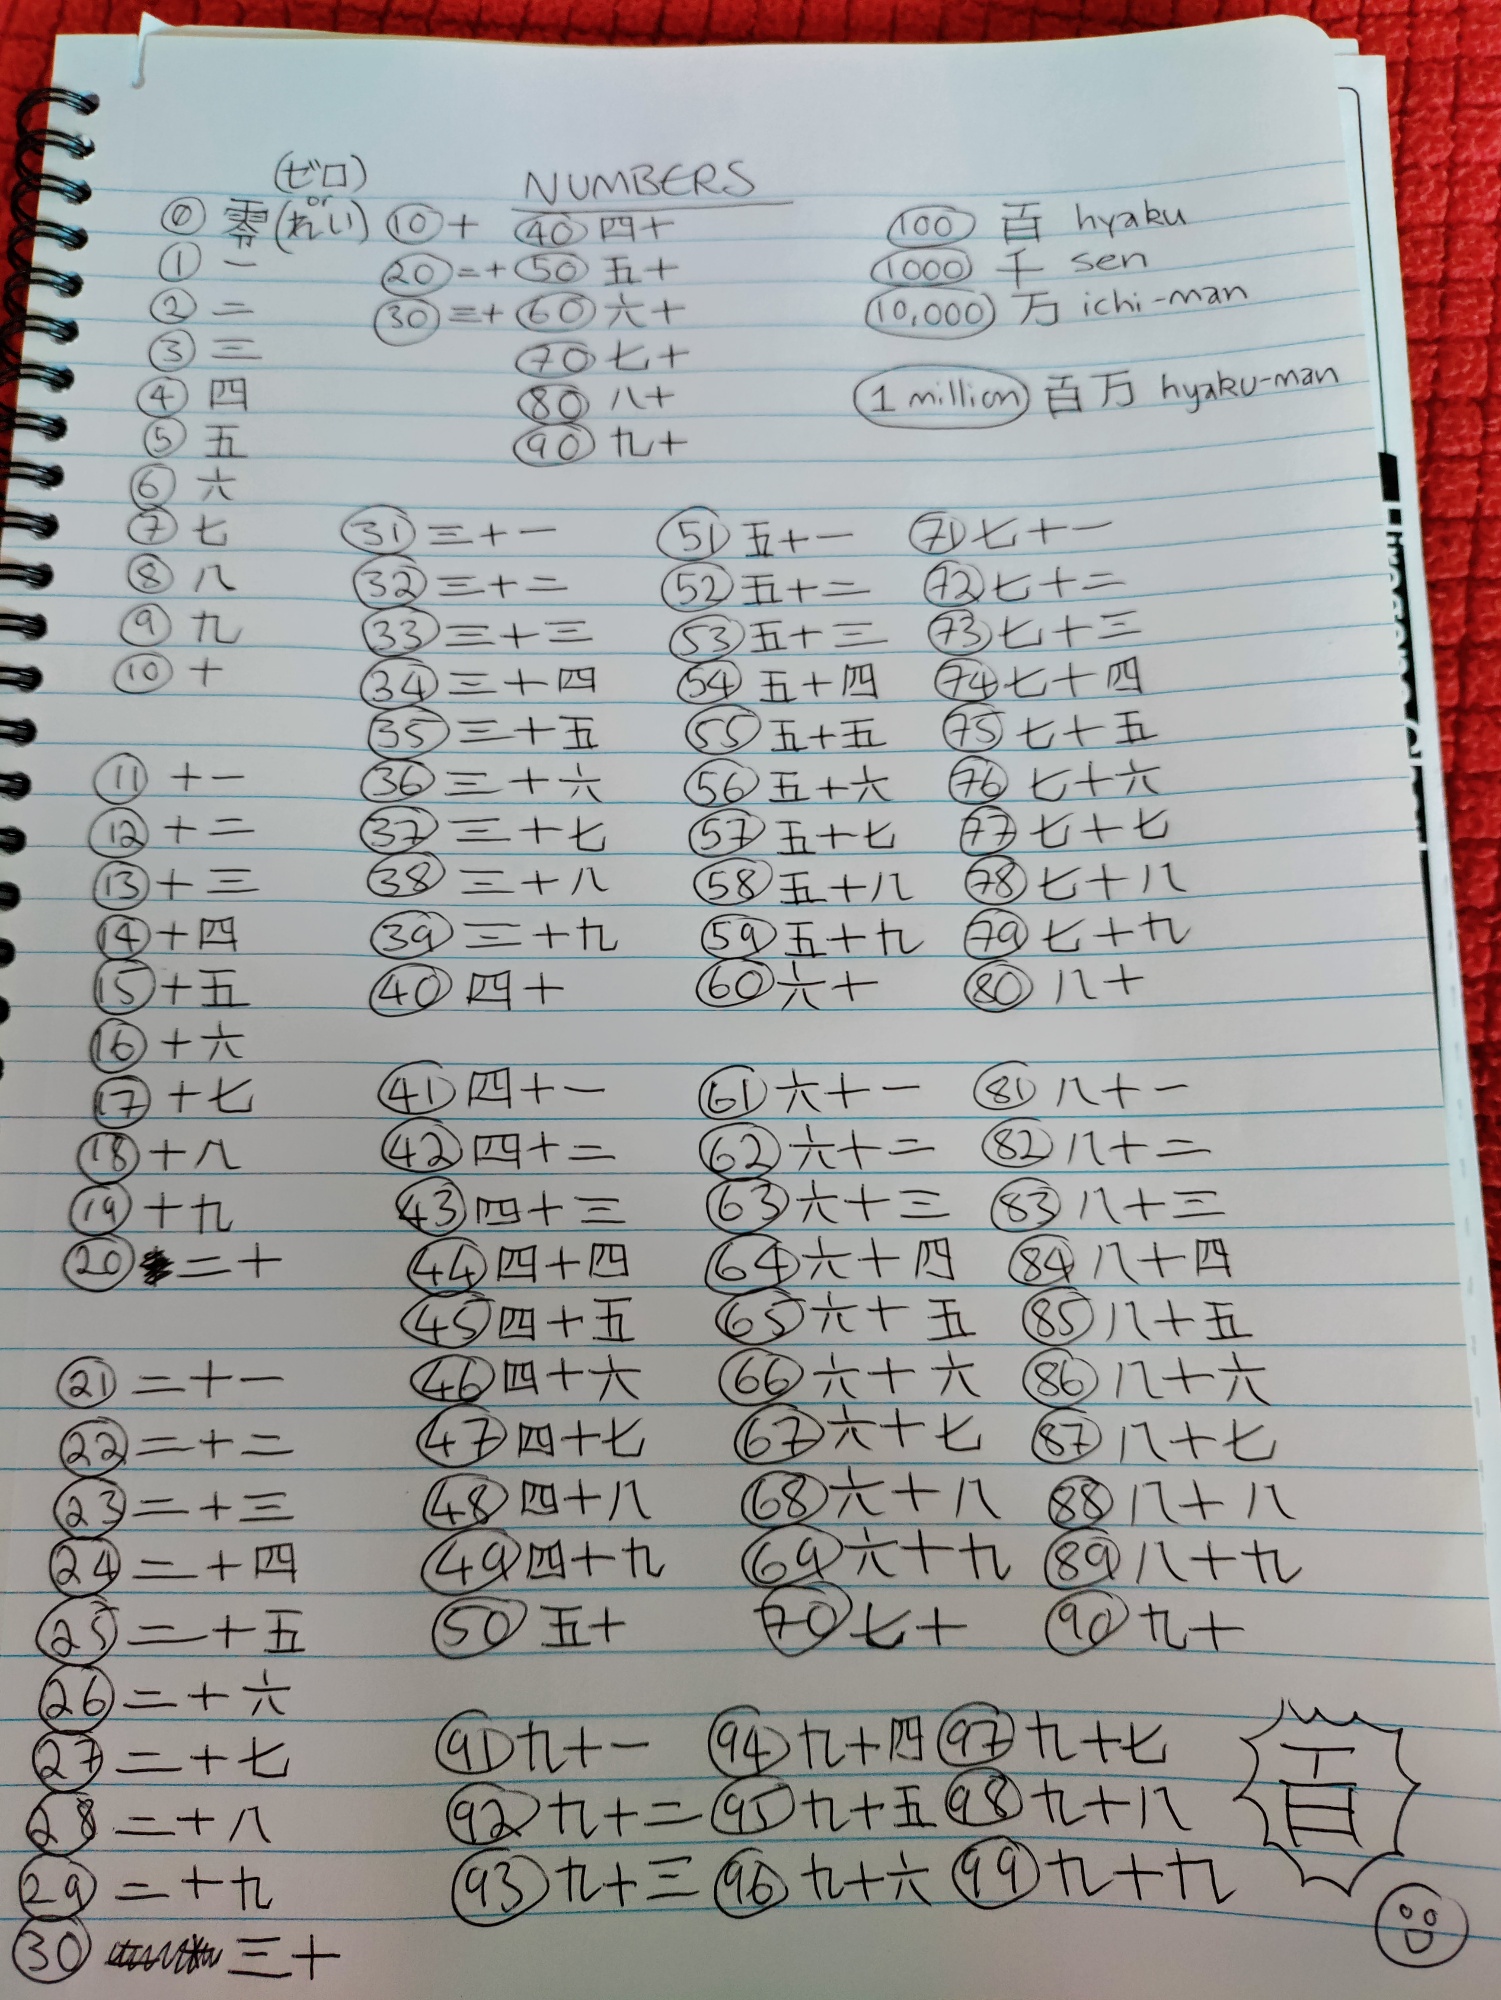 NUMBERS
(ゼロ)
or
0 零 (れい)
1 一
2 二
3 三
4 四
5 五
6 六
7 七
8 八
9 九
10 十
11 十一
12 十二
13 十三
14 十四
15 十五
16 十六
17 十七
18 十八
19 十九
20 二十
21 二十一
22 二十二
23 二十三
24 二十四
25 二十五
26 二十六
27 二十七
28 二十八
29 二十九
30 三十
10 十
20 二十
30 三十
40 四十
50 五十
60 六十
70 七十
80 八十
90 九十
100 百 hyaku
1000 千 sen
10,000 万 ichi-man
1 million 百万 hyaku-man
31 三十一
32 三十二
33 三十三
34 三十四
35 三十五
36 三十六
37 三十七
38 三十八
39 三十九
40 四十
41 四十一
42 四十二
43 四十三
44 四十四
45 四十五
46 四十六
47 四十七
48 四十八
49 四十九
50 五十
51 五十一
52 五十二
53 五十三
54 五十四
55 五十五
56 五十六
57 五十七
58 五十八
59 五十九
60 六十
61 六十一
62 六十二
63 六十三
64 六十四
65 六十五
66 六十六
67 六十七
68 六十八
69 六十九
70 七十
71 七十一
72 七十二
73 七十三
74 七十四
75 七十五
76 七十六
77 七十七
78 七十八
79 七十九
80 八十
81 八十一
82 八十二
83 八十三
84 八十四
85 八十五
86 八十六
87 八十七
88 八十八
89 八十九
90 九十
91 九十一
92 九十二
93 九十三
94 九十四
95 九十五
96 九十六
97 九十七
98 九十八
99 九十九
百